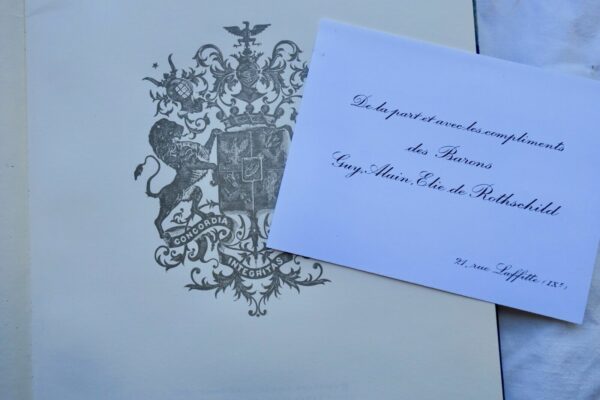 CONCORDIA
INTEGRITAS
De la part et avec les compliments
des Barons
Guy, Alain, Elie de Rothschild
21, rue Laffitte (IXᵉ)